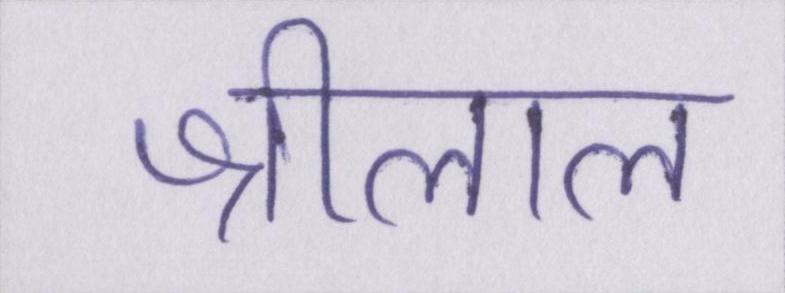 श्रीलाल